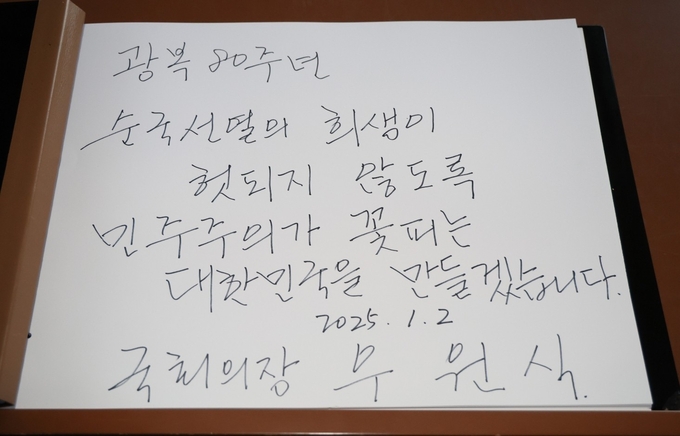 광복 80주년
순국선열의 희생이
헛되지 않도록
민주주의가 꽃피는
대한민국을 만들겠습니다.
2025. 1. 2
국회의장 우 원 식.